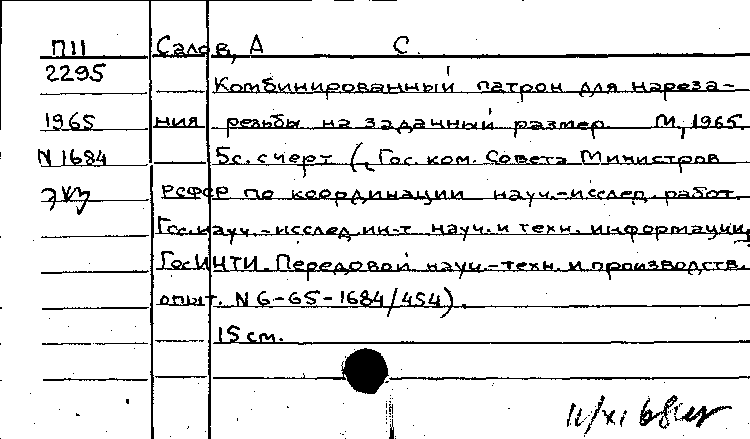 П11 Салов, А С.
2295 Комбинированный патрон для нареза-
1965 ния резьбы на заданный размер. М, 1965.
N 1684 5с. с черт (Гос. ком. Совета Министров
РСФСР по координации науч.-исслед. работ.
Гос.науч.-исслед.ин-т науч. и техн. информации,
ГосИНТИ. Передовой науч.-техн. и производств.
опыт. N 6-65-1684/454).
15 см.